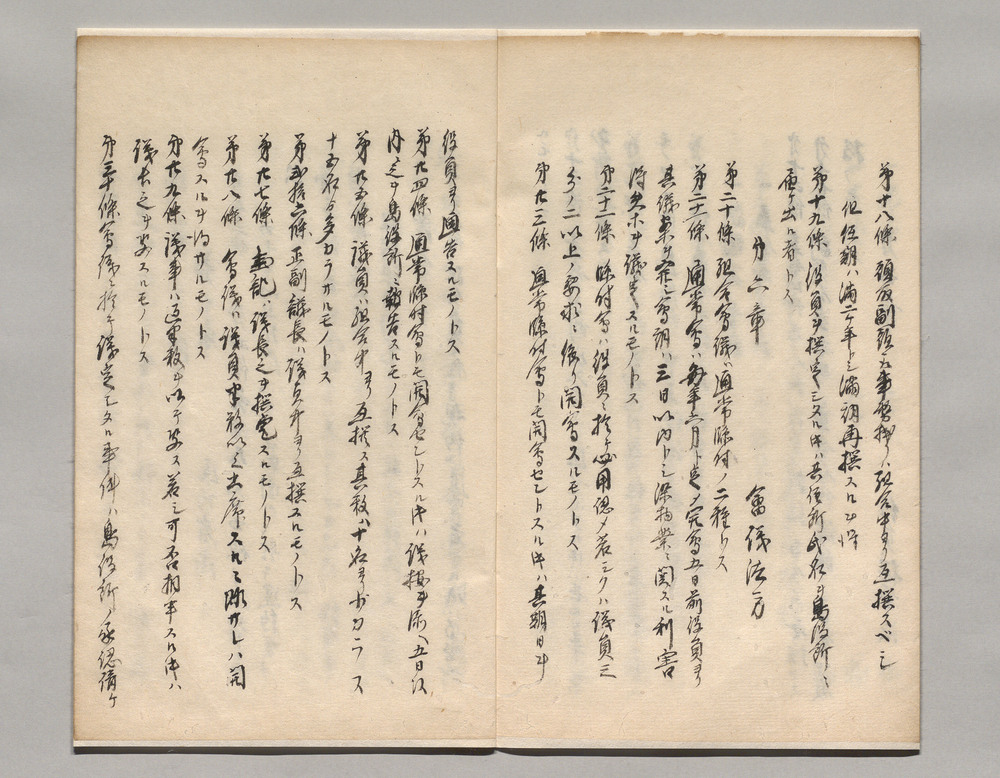 第十八條 頭取副頭取事務掛ハ組合中ヨリ互撰スベシ
但任期ハ満一ケ年トシ満期再撰スルヲ得
第十九條 役員ヲ撰定シタルトキハ其住所氏名ヲ島役所ニ
届ケ出ル者トス
第六章 會議法方
第二十條 組合會議ハ通常臨付ノ二種トス
第二十一條 通常會ハ毎年二月ト定メ定會五日前役員ヨリ
其議案ヲ会期ハ三日以内トシ染物業ニ関スル利害
得失ホヲ議決スルモノトス
第二十二條 臨付會ハ役員ニ於テ必用認メ若シクハ議員三
分ノ二以上ノ要求ニ依リ開會スルモノトス
第廿三條 通常臨付會トモ開會セントスルトキハ其期日ヲ
役員ヨリ通告スルモノトス
第廿四條 通常臨付會トモ開會セントスルトキハ議按ヲ添ヘ五日以
内之ヲ島役所ニ報告スルモノトス
第廿五條 議員ハ組合中ヨリ互撰ス其数ハ十名ヨリ少カラス
十五名ヨリ多カラサルモノトス
第弐拾六條 正副議長ハ議員中ヨリ互撰スルモノトス
第廿七條 書記ハ議長之ヲ撰定スルモノトス
第廿八條 會議ハ議員半数以上出席スルニ非サレハ開
會スルヲ得サルモノトス
第廿九條 議事ハ過半数ヲ以テ決ス若シ可否相半スルトキハ
議長之ヲ決スルモノトス
第三十條 會議ニ於テ議定シタル事件ハ島役所ノ承認請ケ